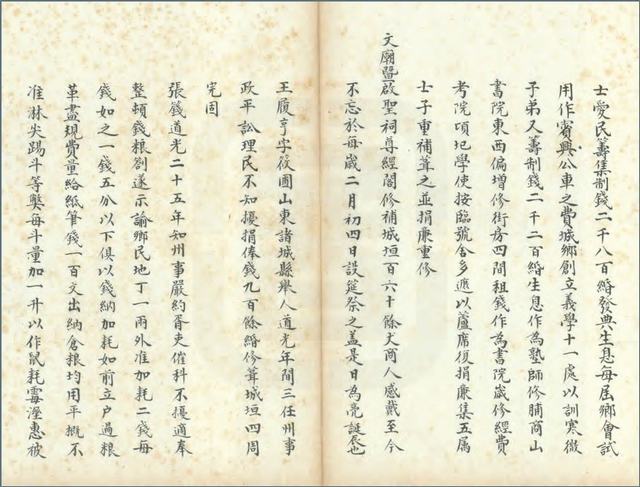 士愛民籌集制錢二千八百緡發典生息每屆鄉會試
用作賓興公車之費城鄉創立義學十一處以訓寒微
子弟又籌制錢二千二百緡生息作為塾師修脯商山
書院東西偏增修街房四間租錢作為書院歲修經費
考院頃圮學使按臨號舍多遮以蘆席復捐廉集五屬
士子重補葺之並捐廉重修
文廟暨啟聖祠尊經閣修補城垣百六十餘丈商人感戴至今
不忘於每歲二月初四日設筵祭之蓋是日為亮誕辰也
王履亨字役圃山東諸城縣舉人道光年間三任州事
政平訟理民不知擾捐俸錢九百餘緡修葺城垣四周
完固
張錢道光二十五年知州事嚴約胥吏催科不擾適奉
整頓錢粮劄遂示諭鄉民地丁一兩外准加耗二錢每
錢如之一錢五分以下俱以錢納加耗如前立戶過粮
革盡現費量給紙筆錢一百文出納倉粮均用平概不
准淋尖踢斗等獘每斗量加一升以作鼠耗霉溼惠被